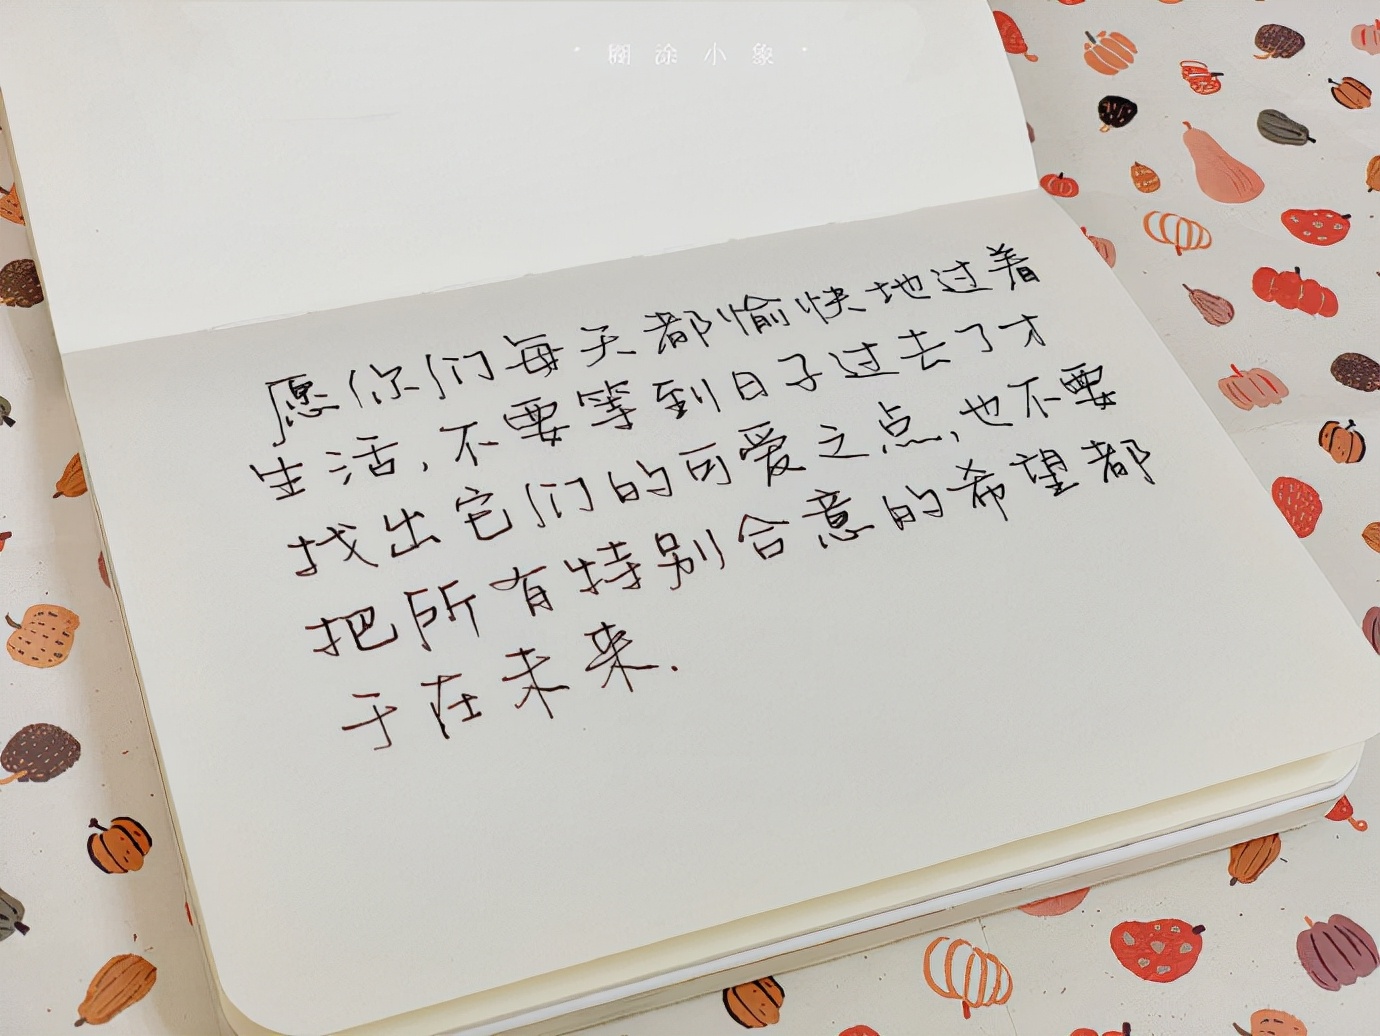 · 糊涂小象 ·
愿你们每天都愉快地过着
生活,不要等到日子过去了才
找出它们的可爱之点,也不要
把所有特别合意的希望都
于在未来.